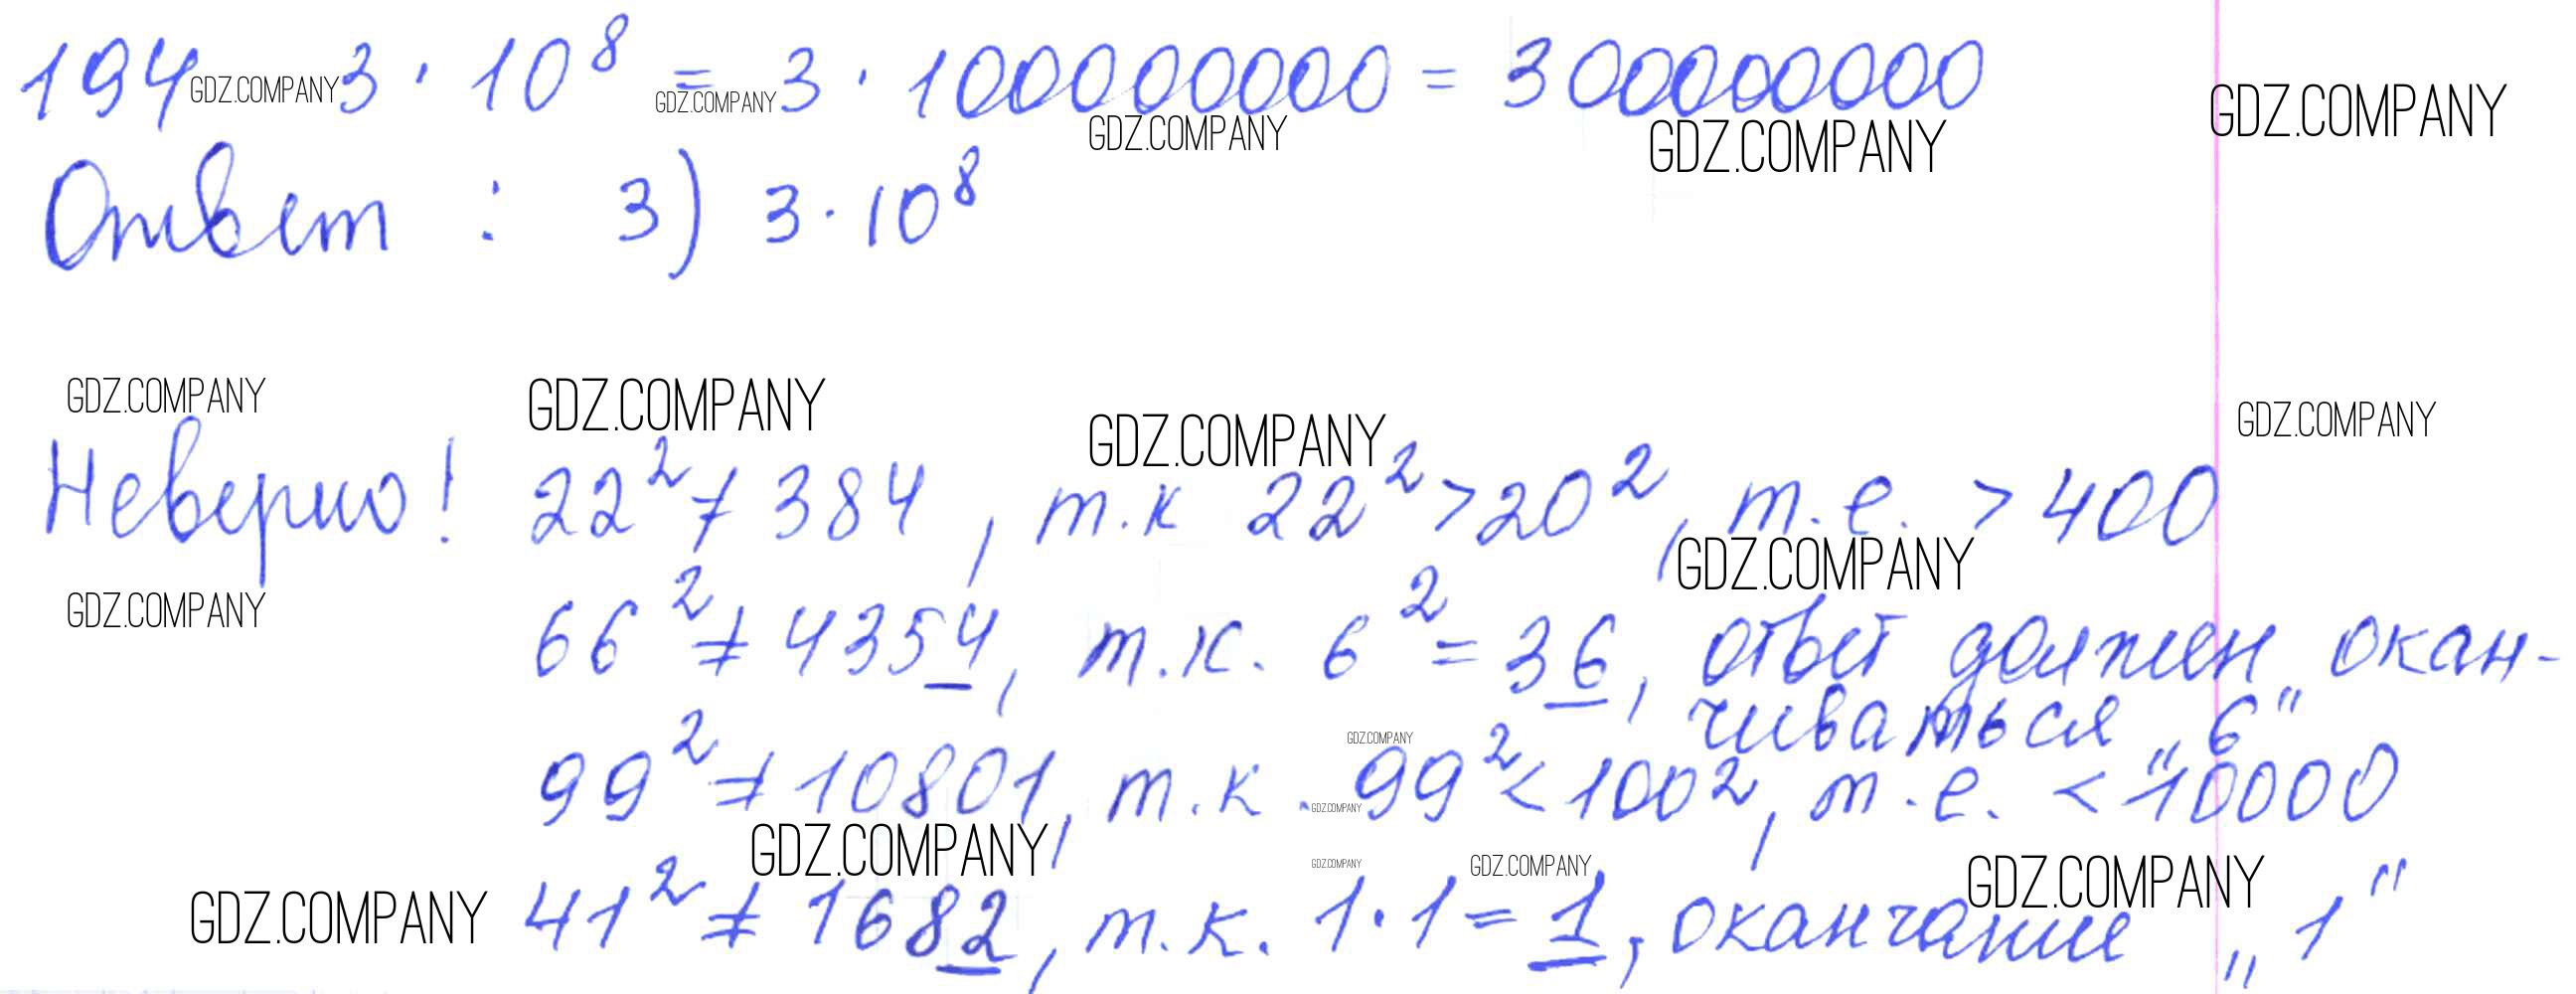 194 GDZ.COMPANY 3 · 10⁸ = GDZ.COMPANY 3 · 100000000 = 300000000
GDZ.COMPANY GDZ.COMPANY GDZ.COMPANY
Ответ : 3) 3 · 10⁸
GDZ.COMPANY GDZ.COMPANY GDZ.COMPANY GDZ.COMPANY
Неверно! 22² ≠ 384, т.к 22² > 20², т.е. > 400
GDZ.COMPANY GDZ.COMPANY
66² ≠ 4354, т.к. 6² = 36, ответ должен окан-
чиваться „6"
GDZ.COMPANY
99² ≠ 10801, т.к. 99² < 100², т.е. < 10000
GDZ.COMPANY
GDZ.COMPANY GDZ.COMPANY GDZ.COMPANY GDZ.COMPANY
GDZ.COMPANY 41² ≠ 1682, т.к. 1·1 = 1, окончание „1"